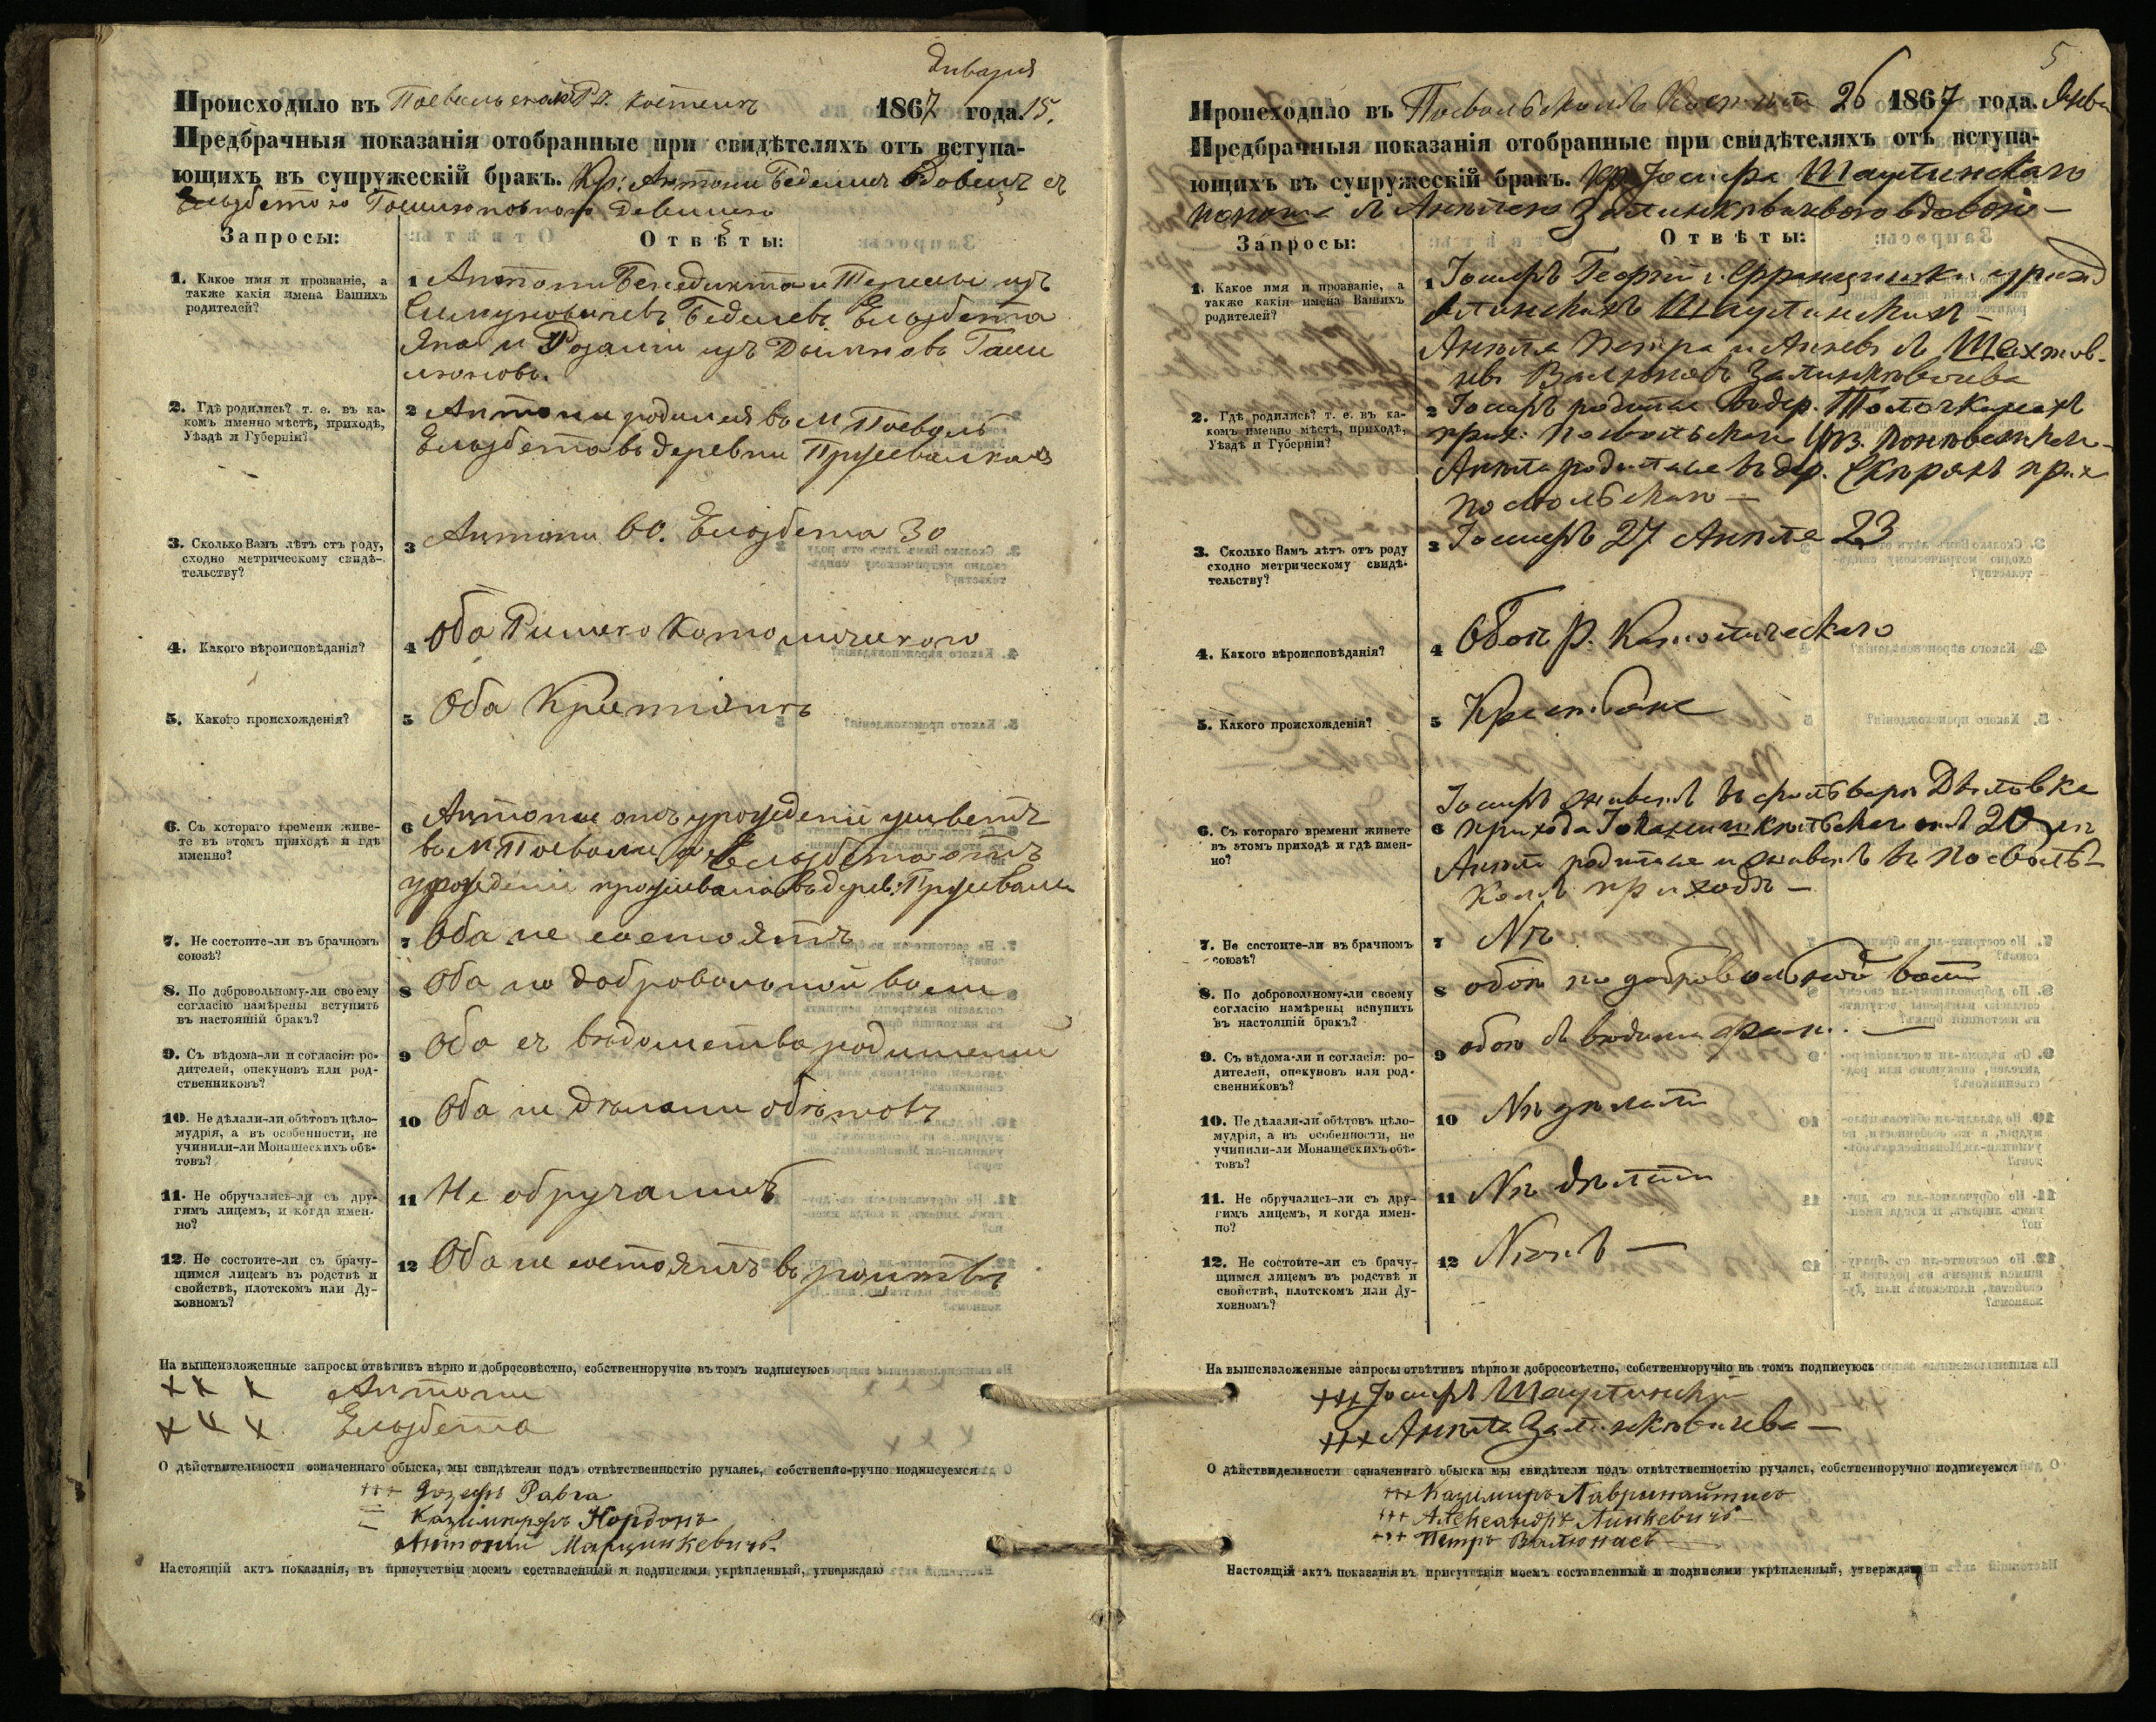 Января
Происходило въ Поевольском Р. К. костеле 1867 года. 15.
Предбрачныя показанія отобранные при свидѣтеляхъ отъ вступа-
ющихъ въ супружескій бракъ. Кр: Антони Беделисъ Вдовецъ съ
Ельзбетою девицею
Запросы: Отвѣты:
1. Какое имя и прозваніе, а
также какія имена Вашихъ
родителей?
1 Антони Бенедикта и Терессы изъ
Симуновичевъ Беделевъ Ельзбета
Яна и Розалiи изъ
2. Гдѣ родились? т. е. въ ка-
комъ именно мѣстѣ, приходѣ,
Уѣздѣ и Губерніи?
2 Антони родился въ М Поевель
Ельзбета въ деревни
3. Сколько Вамъ лѣтъ отъ роду,
сходно метрическому свидѣ-
тельству?
3 Антони 60. Ельзбета 30
4. Какого вѣроисповѣданія?
4 Оба Римско Католического
5. Какого происхожденія?
5 Оба Крестiянъ
6. Съ котораго времени живе-
те въ этомъ приходѣ и гдѣ
именно?
6 Антони отъ урожденiи
въ М Поеволи а Ельзбета отъ
урожденiи проживала въ дерев:
7. Не состоите-ли въ брачномъ
союзѣ?
7 Оба не состоятъ
8. По добровольному-ли своему
согласію намѣрены вступить
въ настоящій бракъ?
8 Оба по добровольной воли
9. Съ вѣдома-ли и согласія: ро-
дителей, опекуновъ или род-
ственниковъ?
9 Оба съ вѣдомства родителей
10. Не дѣлали-ли обѣтовъ цѣло-
мудрія, а въ особенности, не
учинили-ли Монашескихъ обѣ-
товъ?
10 Оба не дѣлали обѣтовъ
11. Не обручались-ли съ дру-
гимъ лицемъ, и когда имен-
но?
11 Не обручались
12. Не состоите-ли съ брачу-
щимся лицемъ въ родствѣ и
свойствѣ, плотскомъ или Ду-
ховномъ?
12 Оба не состоятъ въ родствѣ
На вышеизложенные запросы отвѣтивъ вѣрно и добросовѣстно, собственноручно въ томъ подписуюсь
××× Антони
××× Ельзбета
О дѣйствительности означеннаго обыска, мы свидѣтели подъ отвѣтственностію ручаясь, собственно-ручно подписуемся
+++ Іозефъ Равга
Казимиръ Нордонъ
Антоній Марцинкевичъ.
Настоящій актъ показанія, въ присутствіи моемъ составленный и подписями укрѣпленный, утверждаю
5
Происходило въ Поевольскомъ Костелѣ 26 1867 года. Янва
Предбрачныя показанія отобранные при свидѣтеляхъ отъ вступа-
ющихъ въ супружескій бракъ. Кр Іосифа Шаутинскаго
юноша съ Анѣлею вдовою —
Запросы: Отвѣты:
1. Какое имя и прозваніе, а
также какія имена Вашихъ
родителей?
1 Іосифъ Георгія и Францишки урожд
Шаутинскихъ
Анѣля Петра и Анны
Валюновъ
2. Гдѣ родились? т. е. въ ка-
комъ именно мѣстѣ, приходѣ,
Уѣздѣ и Губерніи?
2 Іосифъ родился въ дер.
прих. Поевольскаго Уѣз. Поневежскаго
Анѣля родилась въ дер. прих
Поевольскаго —
3. Сколько Вамъ лѣтъ отъ роду
сходно метрическому свидѣ-
тельству?
3 Іосифъ 27 Анѣля 23
4. Какого вѣроисповѣданія?
4 Обои Р. Католическаго
5. Какого происхожденія?
5 Крестьяне
6. Съ котораго времени живете
въ этомъ приходѣ и гдѣ имен-
но?
Іосифъ живетъ въ
6 прихода 20
Анѣля родилась и живетъ въ Поеволь-
комъ приходѣ —
7. Не состоите-ли въ брачномъ
союзѣ?
7 Нѣ
8. По добровольному-ли своему
согласію намѣрены вступить
въ настоящій бракъ?
8 обои по добровольной воли
9. Съ вѣдома-ли и согласія: ро-
дителей, опекуновъ или род-
свенниковъ?
9 обои съ
10. Не дѣлали-ли обѣтовъ цѣло-
мудрія, а въ особенности, не
учинили-ли Монашескихъ обѣ-
товъ?
10 Нѣ дѣлали
11. Не обручались-ли съ дру-
гимъ лицемъ, и когда имен-
но?
11 Нѣ дѣлали
12. Не состоите-ли съ брачу-
щимся лицемъ въ родствѣ и
свойствѣ, плотскомъ или Ду-
ховномъ?
12 —
На вышеизложенные запросы отвѣтивъ вѣрно и добросовѣстно, собственноручно въ томъ подписуюсь
+++ Іосифъ Шаутинскій
+++ Анѣля
О дѣйствидельности означеннаго обыска мы свидѣтели подъ отвѣтственностію ручаясь, собственноручно подписуемся
+++ Казимиръ Лавринайтисъ
+++ Александръ Линкевичъ
+++ Петръ Валюнасъ
Настоящій актъ показанія въ присутствіи моемъ составленный и подписями укрѣпленный, утверждаю